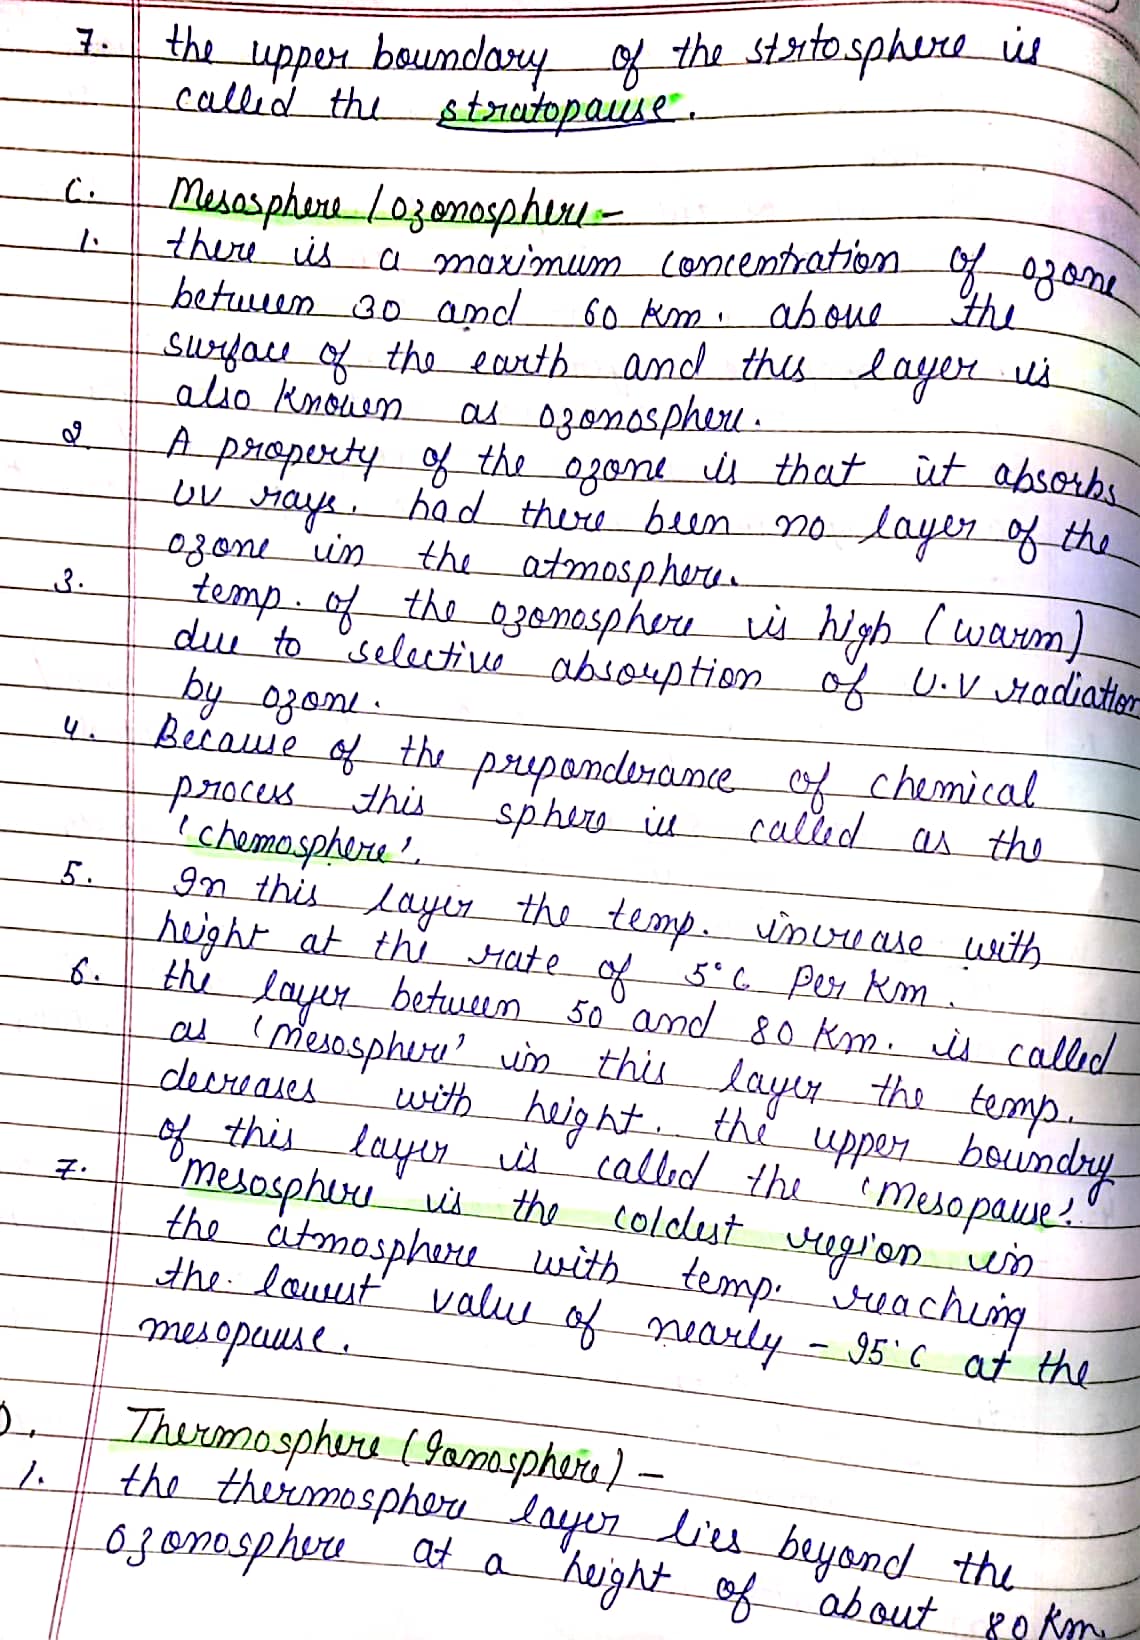 7. the upper boundary of the strtosphere is
called the stratopause.
C. Mesosphere / ozonosphere -
1. there is a maximum concentration of ozone
between 30 and 60 km. above the
surface of the earth and this layer is
also known as ozonosphere.
2. A property of the ozone is that it absorbs
UV rays. had there been no layer of the
ozone in the atmosphere.
3. temp. of the ozonosphere is high (warm)
due to selective absorption of U.V radiation
by ozone.
4. Because of the preponderance of chemical
process this sphere is called as the
'chemosphere'.
5. In this layer the temp. increase with
height at the rate of 5°C Per Km.
6. the layer between 50 and 80 Km. is called
as 'mesosphere' in this layer the temp.
decreases with height. the upper boundry
of this layer is called the 'mesopause'.
7. mesosphere is the coldest region in
the atmosphere with temp. reaching
the lowest value of nearly - 95°C at the
mesopause.
D. Thermosphere (Ionosphere) -
1. the thermosphere layer lies beyond the
ozonosphere at a height of about 80 Km.